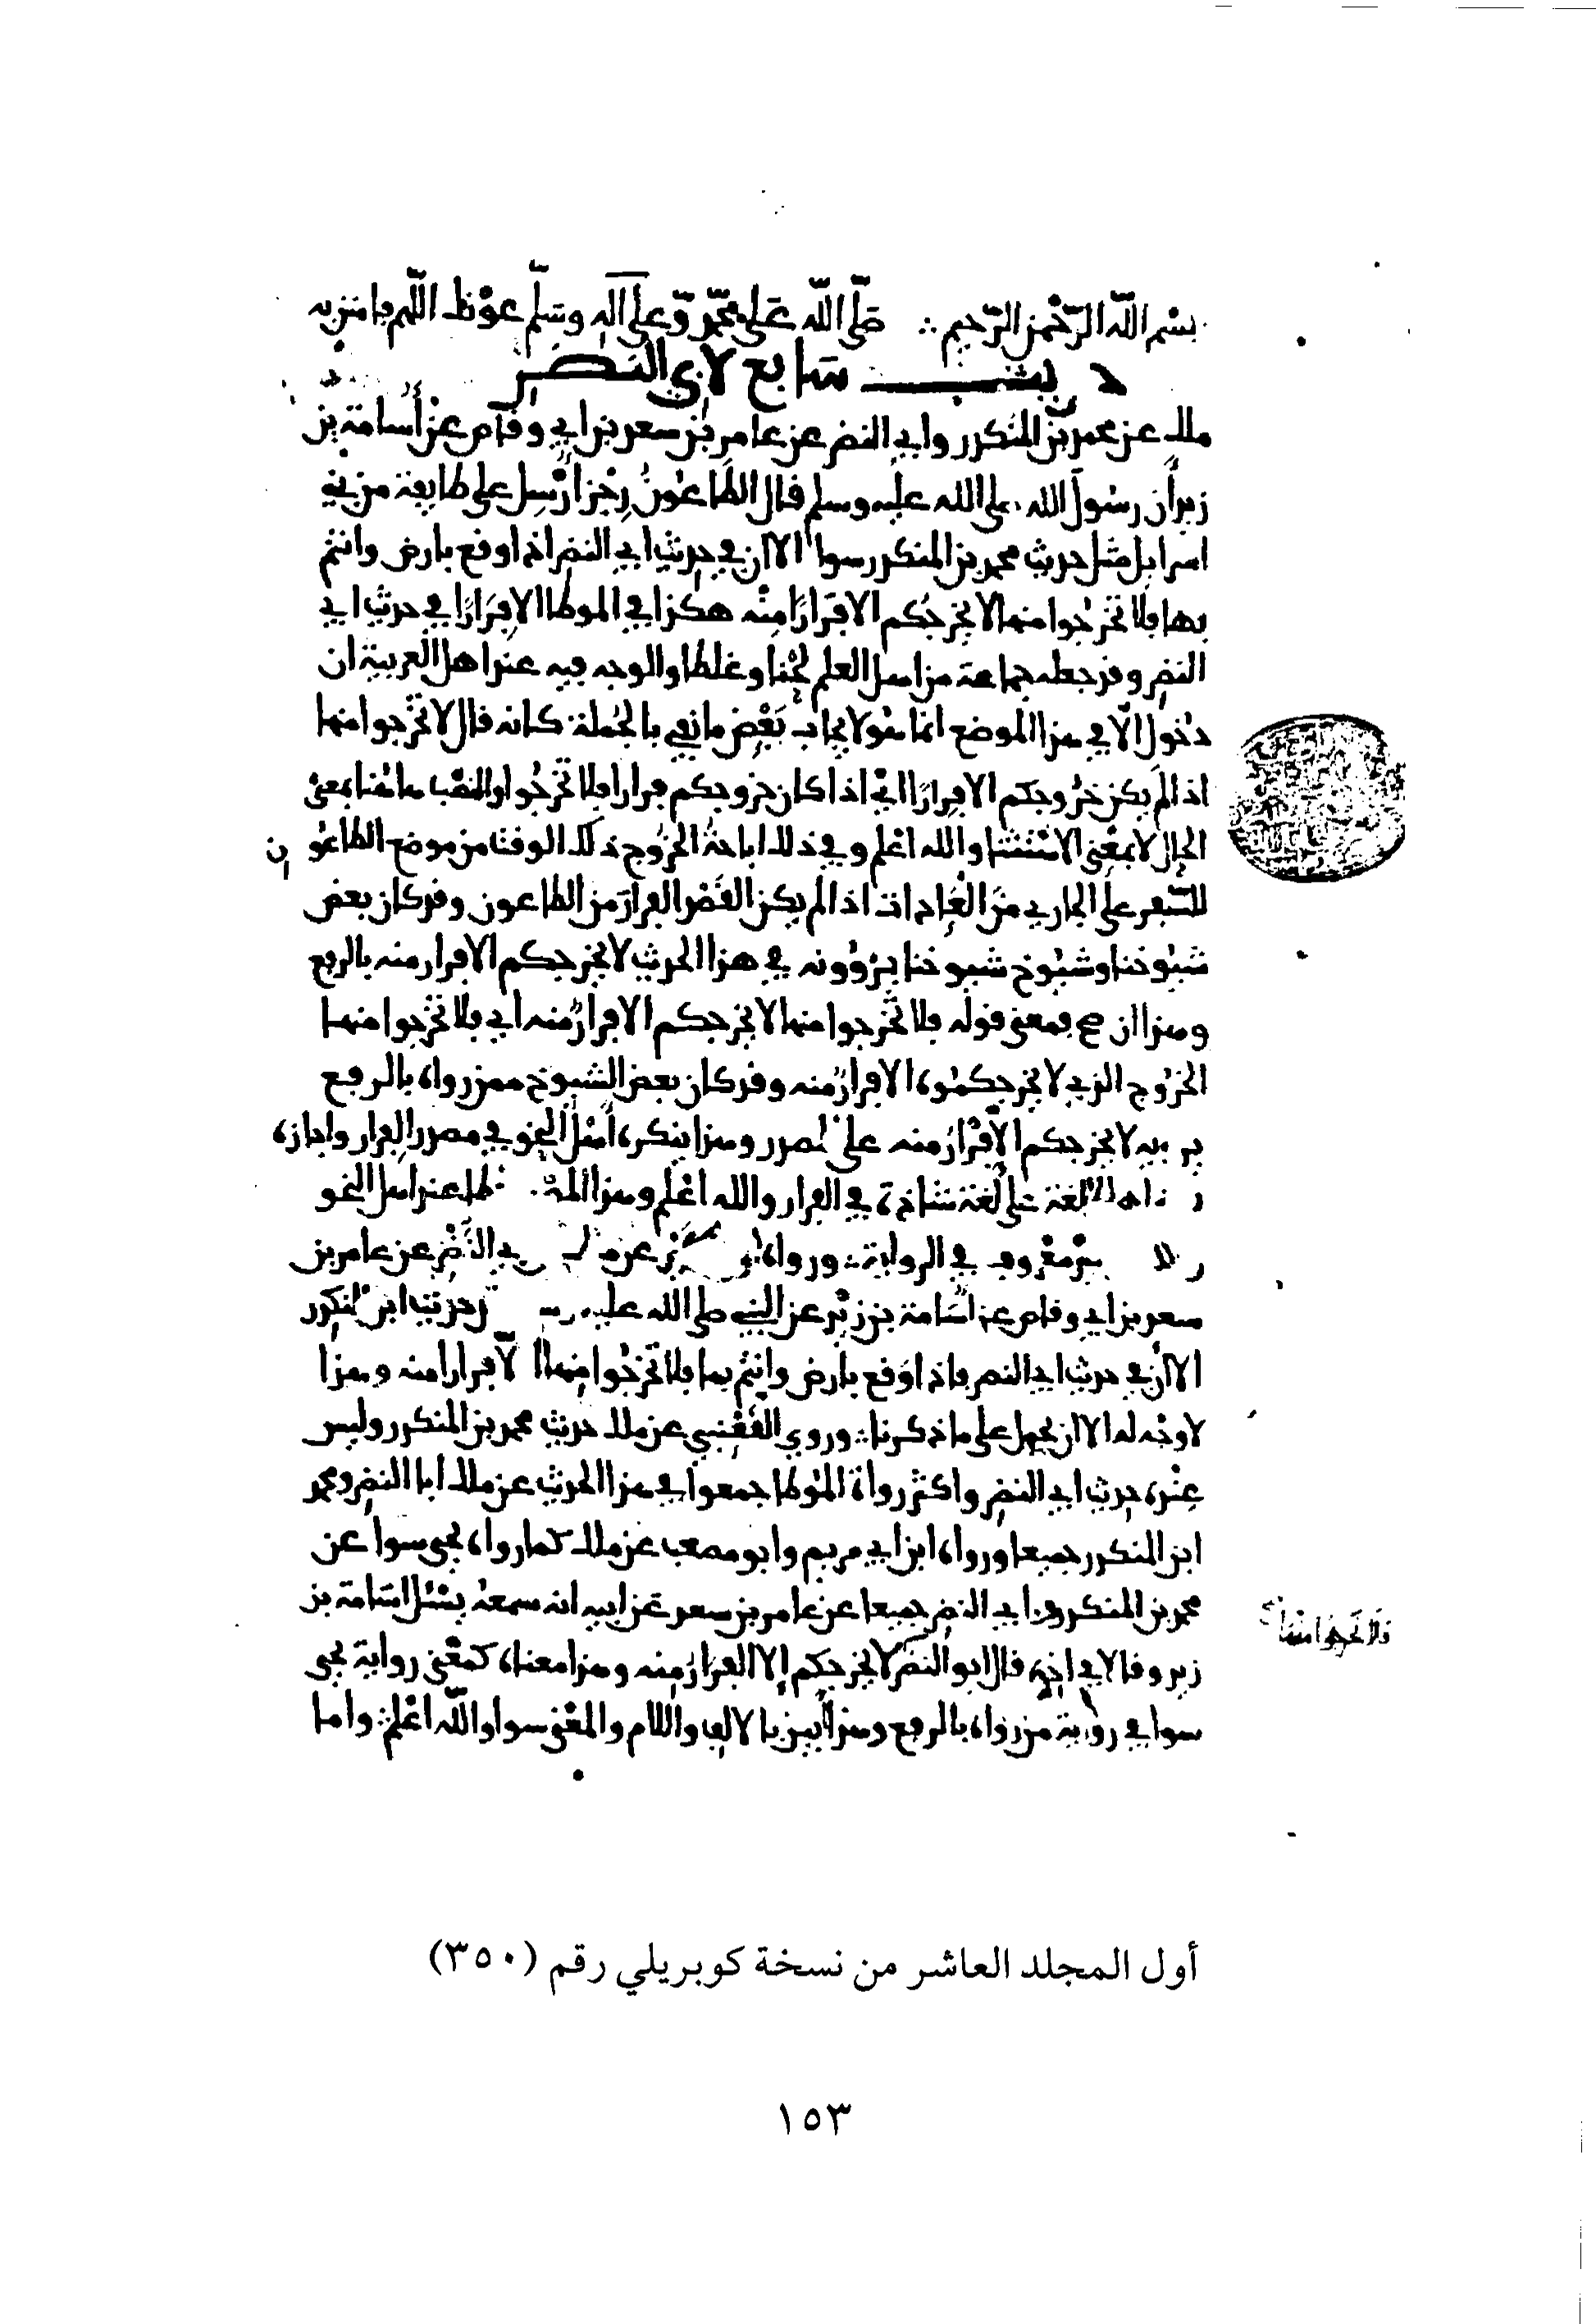 بسم الله الرحمن الرحيم صلى الله على محمد وعلى آله وسلم عونك اللهم يا من به
حديث سابع لأبي النضر
ملك عن محمد بن المنكدر وأبي النضر عن عامر بن سعد بن أبي وقاص عن أسامة بن
زيد أن رسول الله صلى الله عليه وسلم قال الطاعون رجز أرسل على طايفة من بني
اسرايل مثل حديث محمد بن المنكدر سوا الا ان في حديث ابي النضر اذا وقع بارض وانتم
بها فلا تخرجوا منها لا يخرجكم الا فرارا منه هكذا في الموطا الا فرارا في حديث ابي
النضر وقد جعله جماعة من اهل العلم لحنا وغلطا والوجه فيه عند اهل العربية ان
دخول الا في هذا الموضع انما هو لايجاب بعض ما نفي بالجملة كانه قال لا تخرجوا منها
اذا لم يكن خروجكم الا فرارا اي اذا كان خروجكم فرارا فلا تخرجوا والنصب هاهنا بمعنى
الحال لا بمعنى الاستثنا والله اعلم وفي ذلك اباحة الخروج ذلك الوقت من موضع الطاعون
للسفر على الجاري من العادات اذا لم يكن القصد الفرار من الطاعون وقد كان بعض
شيوخنا وشيوخ شيوخنا يروونه في هذا الحديث لا يخرجكم الا فرار منه بالرفع
وهذا ان صح فمعنى قوله فلا تخرجوا منها لا يخرجكم الا فرار منه اي فلا تخرجوا منها
الخروج الذي لا يخرجكموه الا فرار منه وقد كان بعض الشيوخ ممن رواه بالرفع
يرويه لا يخرجكم الإفرار منه على المصدر وهذا ينكره أهل النحو في مصدر الفرار واجازه
اهل اللغة على لغة شاذة في الفرار والله اعلم وهذا عند اهل النحو
معروف في الرواية ورواه عن النضر عن عامر بن
سعد بن ابي وقاص عن أسامة بن زيد عن النبي صلى الله عليه حديث ابن المنكدر
الا أن في حديث ابي النضر فاذا وقع بارض وانتم بها فلا تخرجوا منها الا فرارا منه وهذا
لا وجه له الا ان يحمل على ما ذكرنا وروى القعنبي عن ملك حديث محمد بن المنكدر وليس
عنده حديث ابي النضر واكثر رواة الموطا جمعوا في هذا الحديث عن ملك ابا النضر ومحمد
ابن المنكدر جميعا ورواه ابن ابي مريم وابو مصعب عن ملك كما رواه يحيى سوا عن
محمد بن المنكدر وابي النضر جميعا عن عامر بن سعد عن ابيه انه سمعه يسئل اسامة بن
زيد وقالا في اخره قال ابو النضر لا يخرجكم إلا الفرار منه وهذا معناه كمعنى رواية يحيى
سوا في رواية من رواه بالرفع وهذا أبين بالالف واللام والمعنى سوا والله أعلم واما
فلا تخرجوا منها
أول المجلد العاشر من نسخة كوبريلي رقم (٣٥٠)
١٥٣